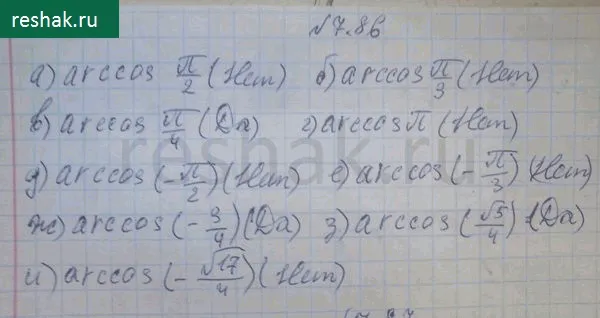 reshak.ru
№7.86
а) arccos π/2 (Нет) б) arccos π/3 (Нет)
в) arccos π/4 (Да) г) arccos π (Нет)
д) arccos (-π/2) (Нет) е) arccos (-π/3) (Нет)
ж) arccos (-3/4) (Да) з) arccos (√5/4) (Да)
и) arccos (-√17/4) (Нет)
reshak.ru